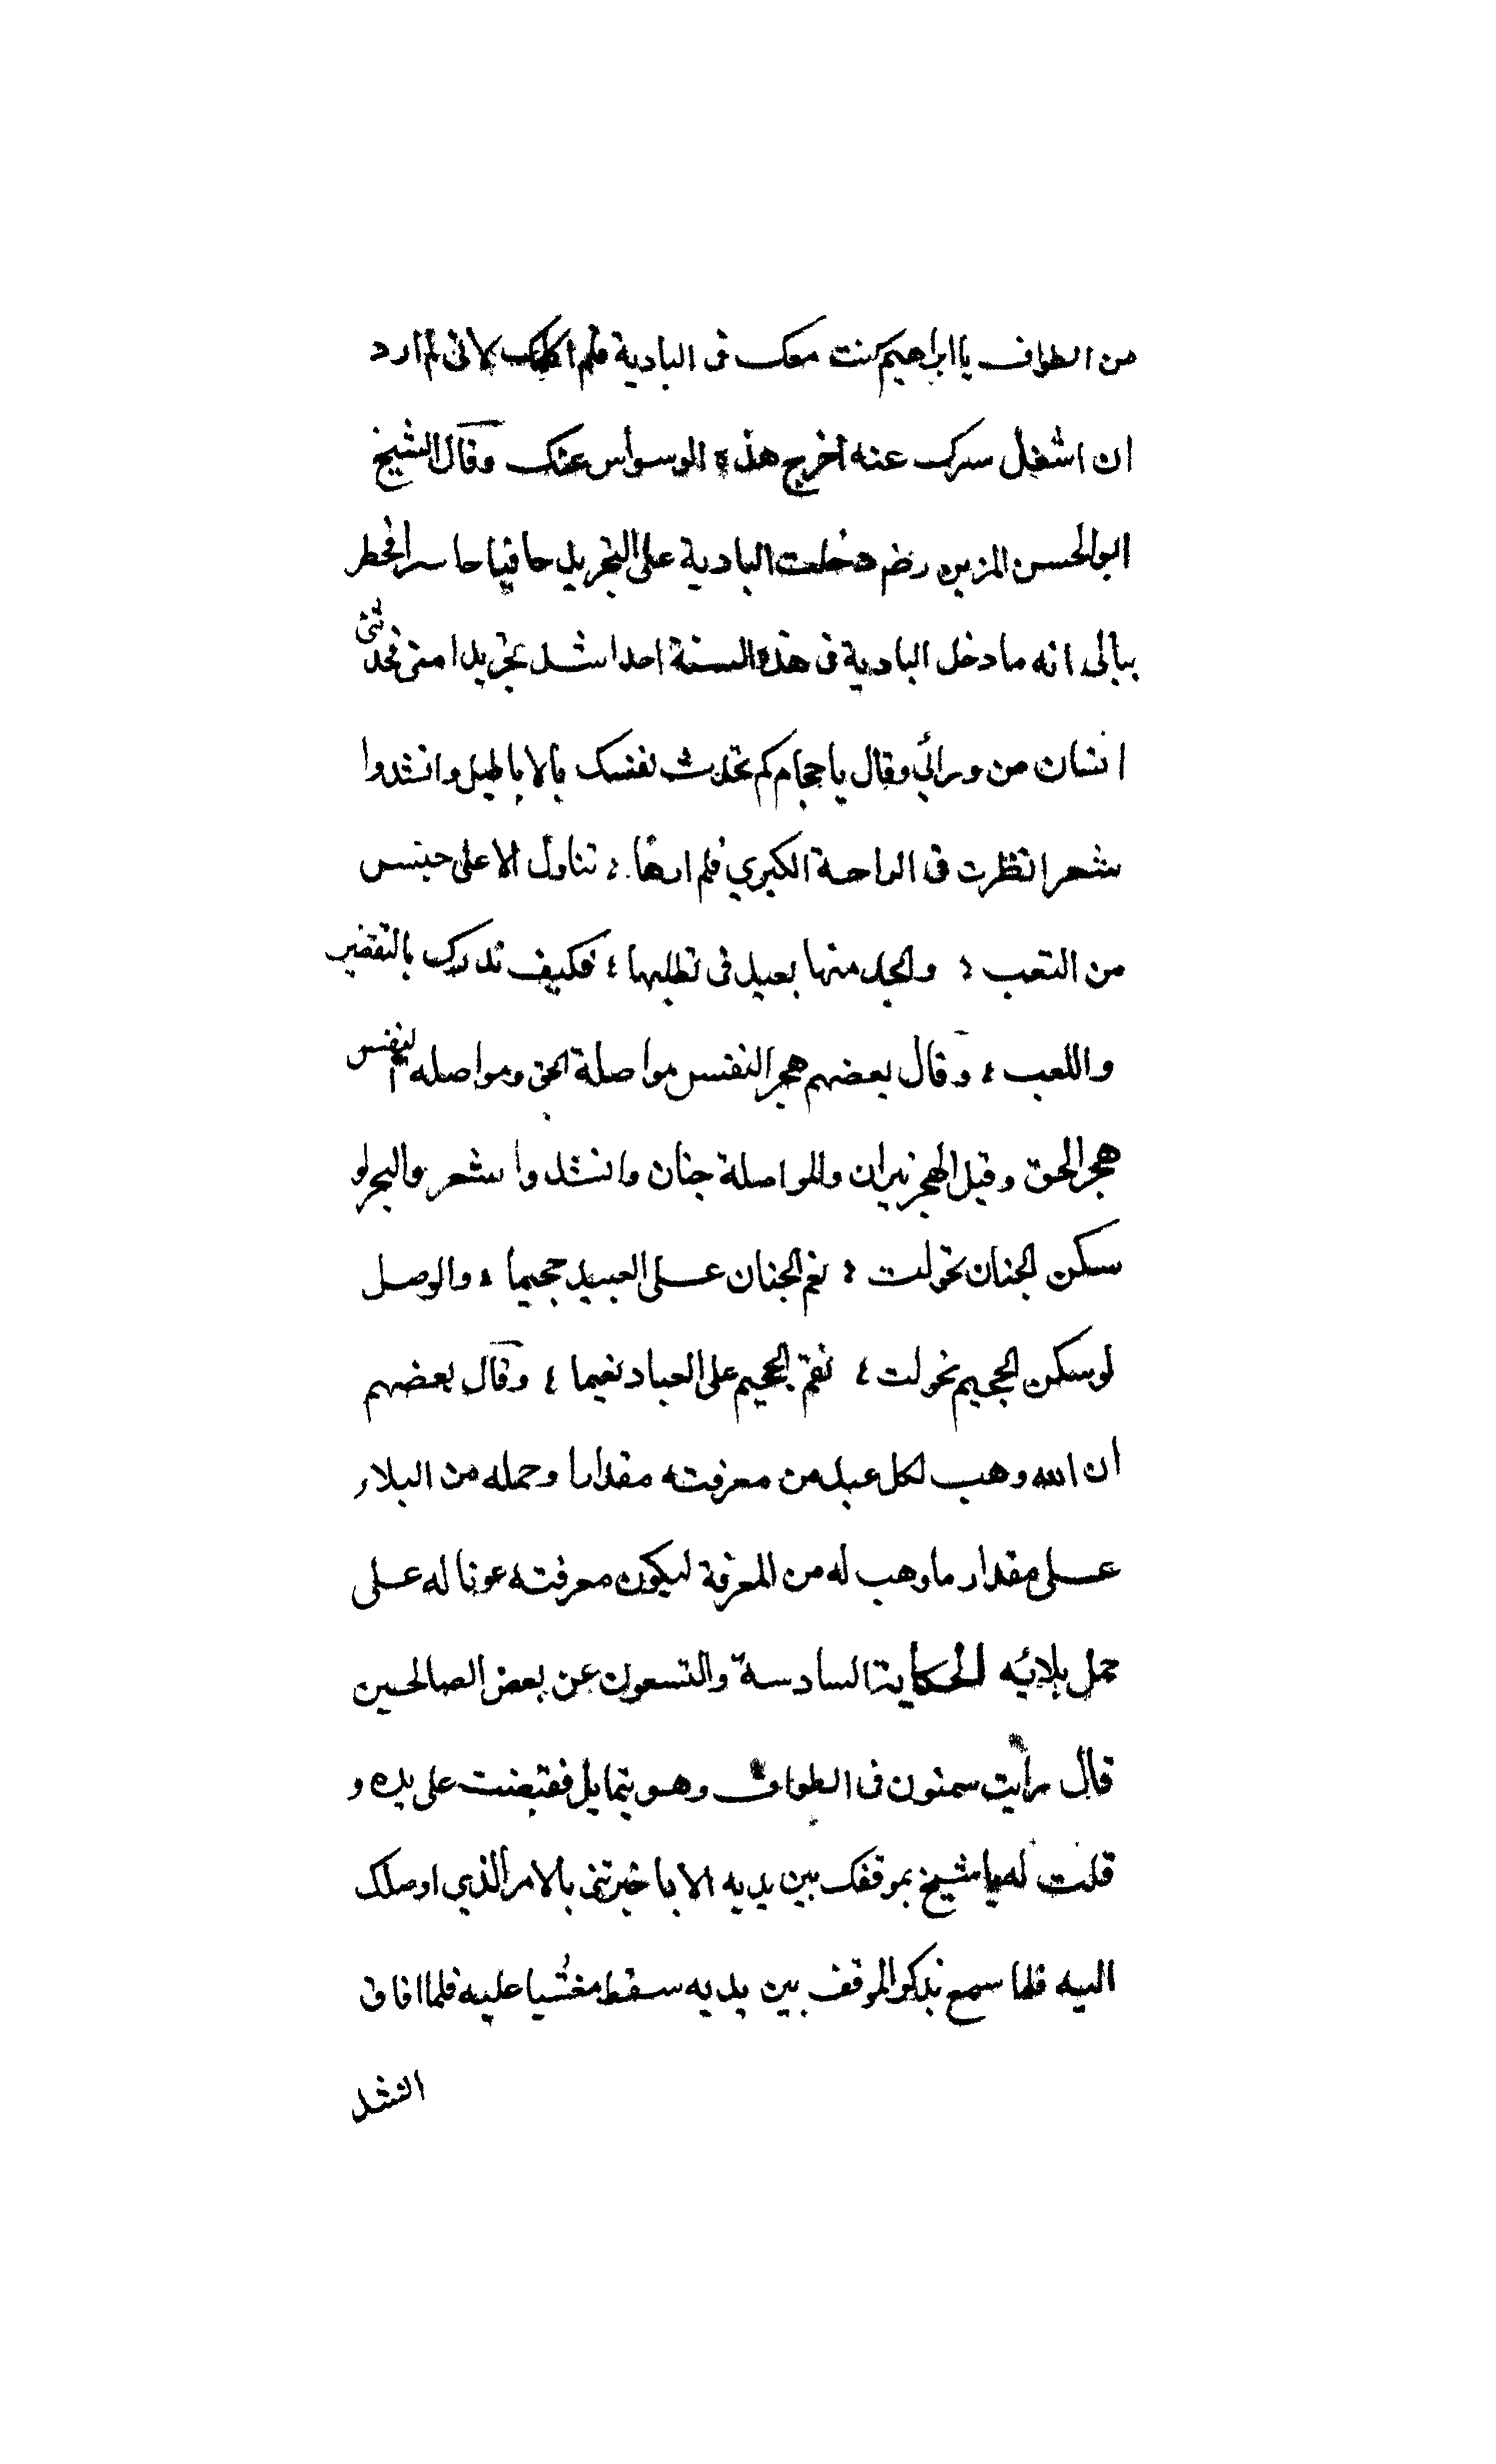 من الطواف يا ابراهيم كنت معك فى البادية فلم اكلمك لانى لم ارد
ان اشغل سرك عنه اخرج هذه الوسواس عنك وقال الشيخ
ابو الحسن المزين رضه دخلت البادية على التجريد حافيا حاسرا فخطر
ببالى انه ما دخل البادية فى هذه السنة احد اشد تجريدا منى فجذبنى
انسان من ورائي وقال يا حجام كم تحدث نفسك بالاباطيل وانشدوا
شعرا نظرت فى الراحة الكبري فلم ارها ؛ تنال الا على
من التعب ؛ والجد منها بعيد فى تطلبها ؛ فكيف تدرك بالتقصير
واللعب ؛ وقال بعضهم هجر النفس مواصلة الحق ومواصله النفس
هجر الحق وقيل الهجر نيران والمواصلة جنان وانشدوا شعر والهجر لو
سكن الجنان تحولت ؛ نعم الجنان على العبيد جحيما ؛ والوصل
لو سكن الجحيم تحولت ؛ نقم الجحيم على العباد نعيما ؛ وقال بعضهم
ان الله وهب لكل عبد من معرفته مقدارا وحمله من البلاء
على مقدار ما وهب له من المعرفة ليكون معرفته عونا له على
حمل بلائه الحكاية السادسة والتسعون عن بعض الصالحين
قال رأيت سمنون فى الطواف وهو يتمايل فقبضت على يده و
قلت له يا شيخ بموقفك بين يديه الا ما خبرتنى بالامر الذي اوصلك
اليه فلما سمع بذكر الموقف بين يديه سقط مغشيا عليه فلما افاق
انشد